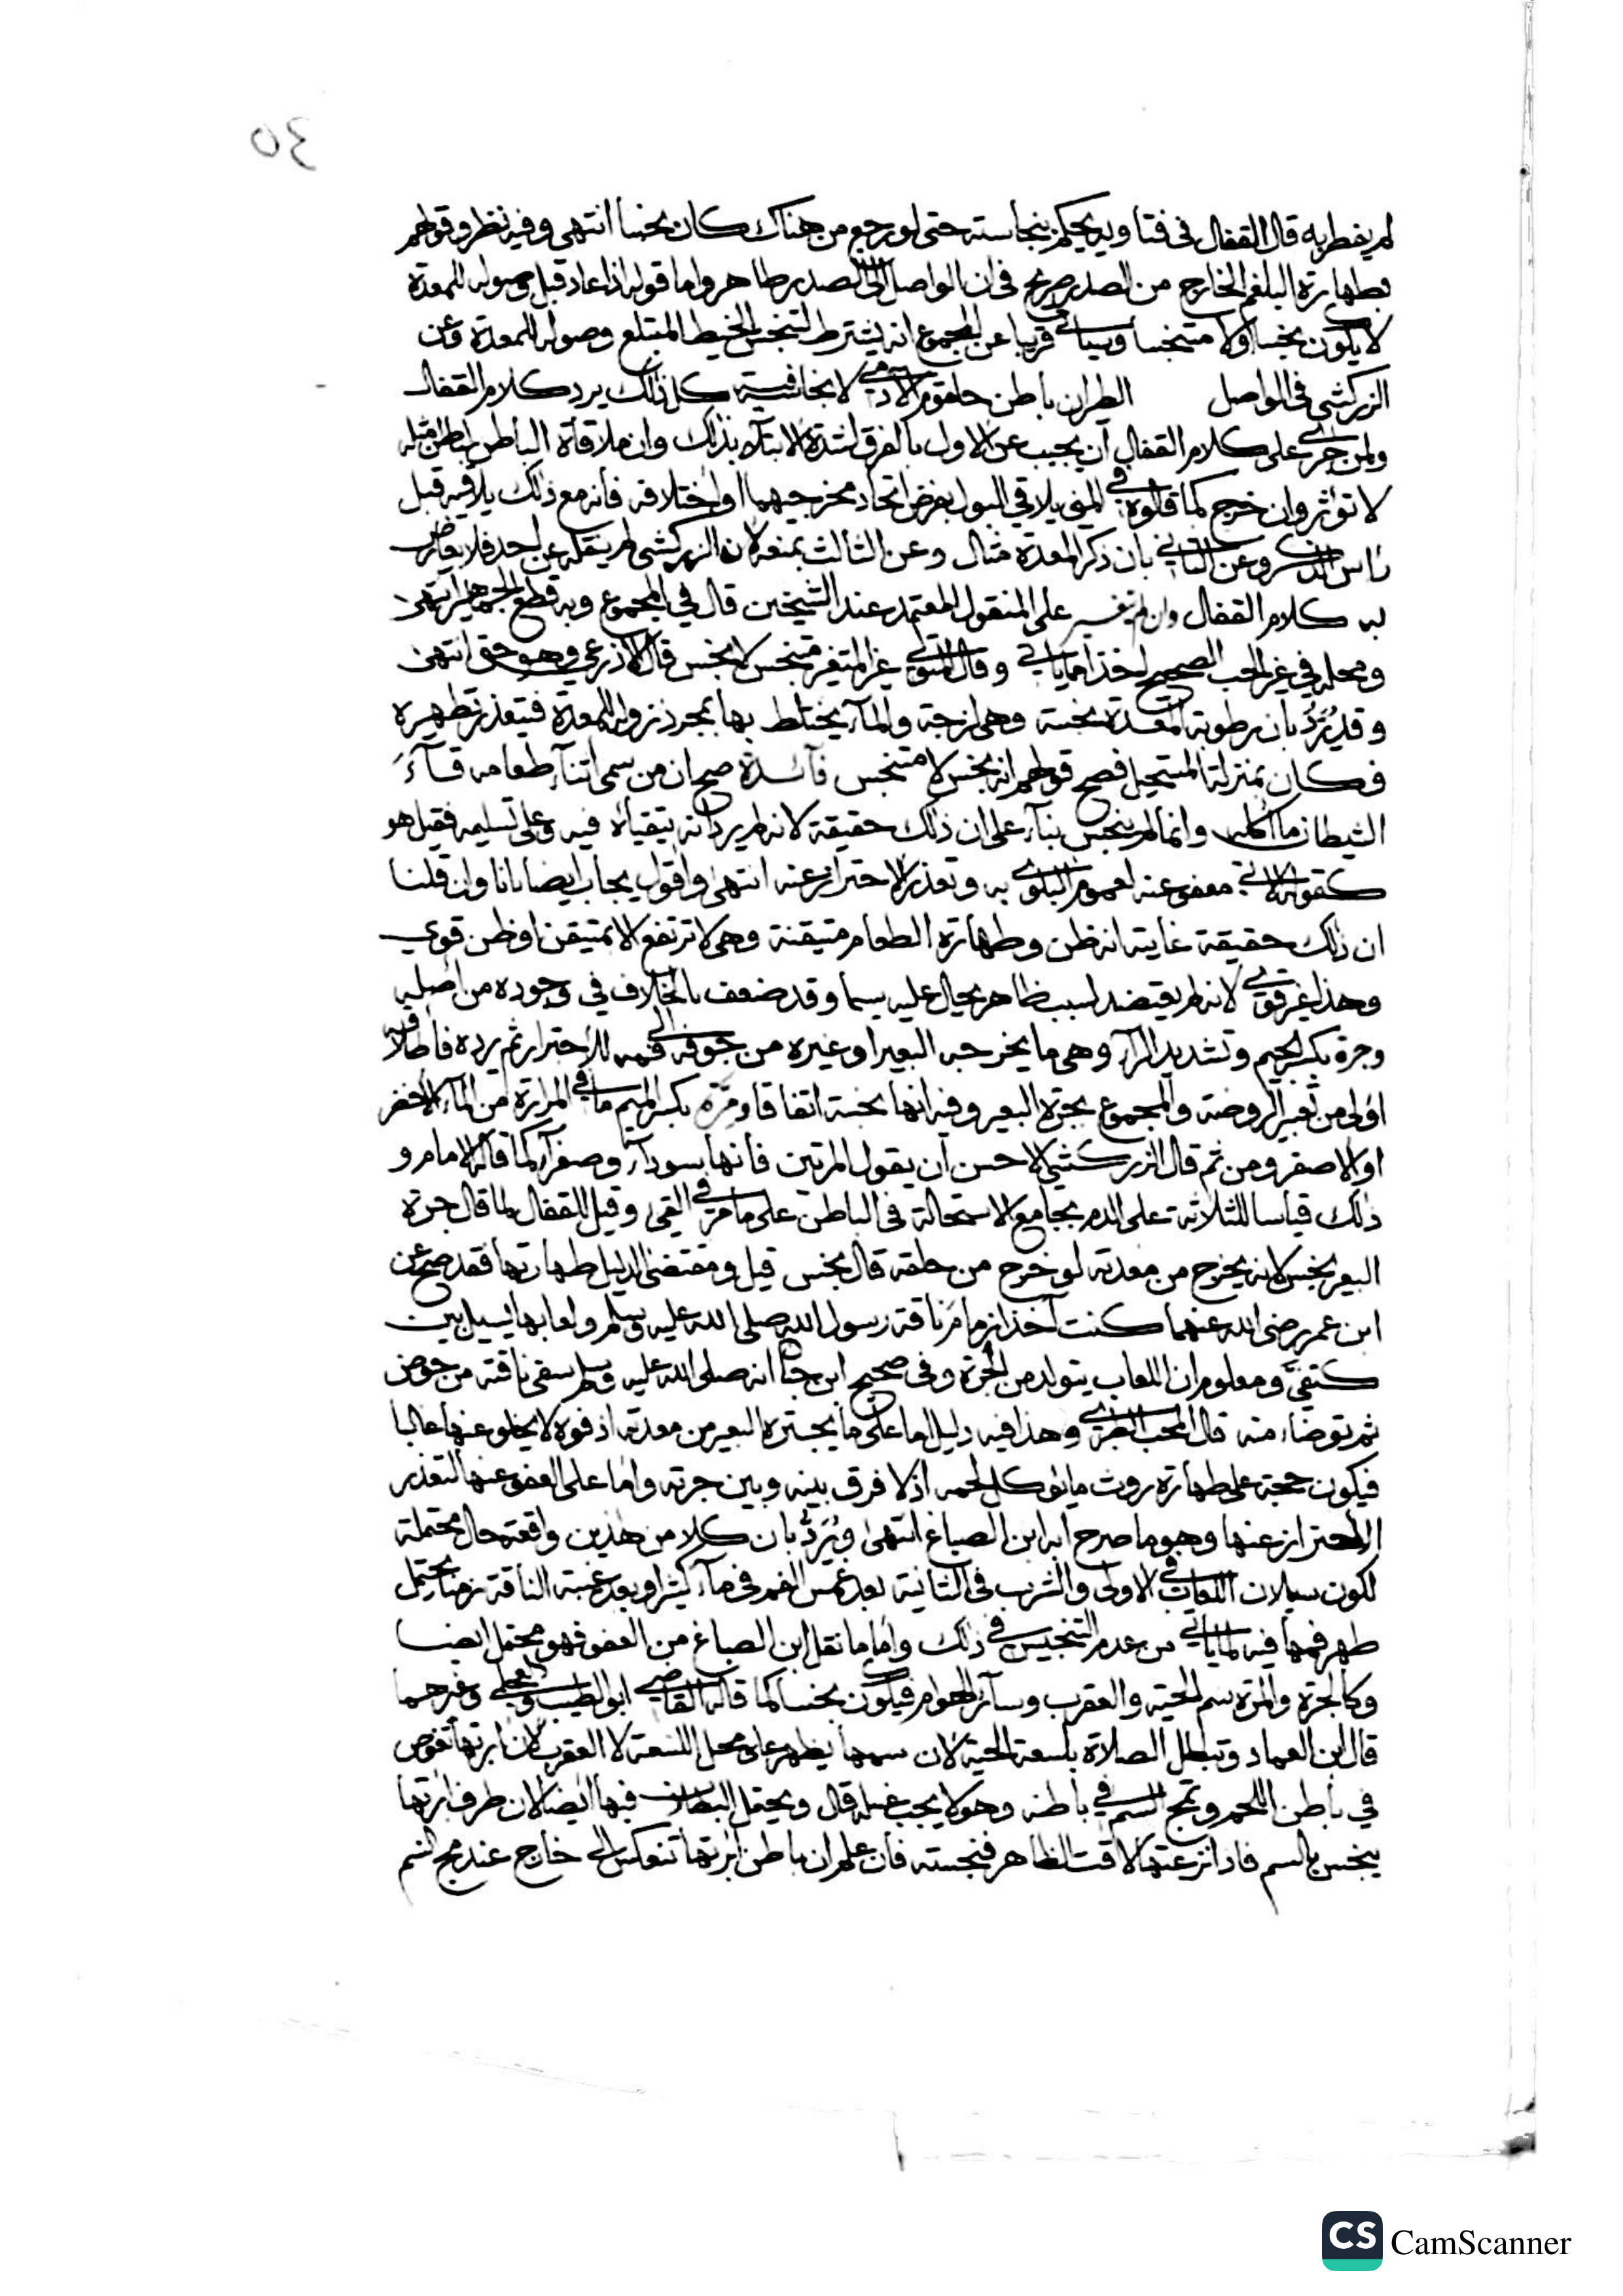 ٤٥
لم يفطر به قال القفال في فتاويه يحكم بنجاسته حتى لو رجع من هناك كان نجسا انتهى وفيه نظر وقولهم
بطهارة البلغم الخارج من الصدر صريح في ان الواصل الى الصدر طاهر واما قوله اذا عاد قبل وصوله للمعدة
لا يكون نجسا ولا متنجسا وسياتي قريبا عن المجموع انه يشترط لتنجس الخيط المبتلع وصوله للمعدة وعن
الزركشي في الواصل الطران باطن حلقوم الآدمي لا نجاسة فيه كل ذلك يرد كلام القفال
ولمن جرى على كلام القفال ان يجيب عن الاول بالفرق لشدة الابتلاء بذلك وان ملاقاة الباطن لباطن مثله
لا تؤثر وان خرج كما قالوه في المني يلاقي البول بفرض اتحاد مخرجيهما او اختلافه فانه مع ذلك يلاقيه قبل
راس الذكر وعن الثاني بان ذكر المعدة مثال وعن الثالث بمنعه لان الزركشي لم ينقله عن احد فلا يعارض
به كلام القفال وان لم يتغير على المنقول المعتمد عند الشيخين قال في المجموع وبه قطع الجماهير انتهى
ومحله في غير الحب الصحيح اخذا مما ياتي وقال المتولي غير المتغير متنجس لا نجس قال الاذرعي وهو حق انتهى
وقد يُرَدُّ بان رطوبة المعدة نجسة وهي لزجة والماء يختلط بها بمجرد نزوله للمعدة فيتعذر تطهيره
فكان بمنزلة المستحيل فصح قولهم انه نجس لا متنجس فائدة صح ان من سمى اثناء طعامه قاءَ
الشيطان ما اكله وانما لم ينجس بناء على ان ذلك حقيقة لانه لم يرد انه يتقيأه فيه وعلى تسليمه فقيل هو
كقوته الاتي معفو عنه لعموم البلوى به وتعذر الاحتراز عنه انتهى واقول يجاب ايضا بانا وان قلنا
ان ذلك حقيقة غايته انه ظن وطهارة الطعام متيقنة وهي لا ترتفع الا بمتيقن او ظن قوي
وهذا غير قوي لانه لم يعتضد لسبب ظاهر يحال عليه سيما وقد ضعف بالخلاف في وجوده من اصله
وجرة بكسر الجيم وتشديد الراء وهي ما يخرجه البعير او غيره من جوفه الى فمه للاجترار ثم يرده فاطلاقه
اولى من تعبير الروضة والمجموع بجرة البعير وفيه انها نجسة اتفاقا ومِرَّة بكسر الميم ما في المرارة من الماء الاخضر
او الاصفر ومن ثم قال الزركشي الاحسن ان يقول المرتين فانها سوداء وصفراء كما قاله الامام و
ذلك قياسا للثلاثة على الدم بجامع الاستحالة في الباطن على ما مر في القيء وقيل للقفال لما قال جرة
البعير نجس لانه يخرج من معدته لو خرج من حلقه قال نجس قيل ومقتضى الدليل طهارتها فقد صح عن
ابن عمر رضي الله عنهما كنت آخذ بزمام ناقة رسول الله صلى الله عليه وسلم ولعابها يسيل بين
كتفيَّ ومعلوم ان اللعاب يتولد من الجرة وفي صحيح ابن حبان انه صلى الله عليه وسلم سقى ناقته من حوض
ثم توضاء منه قال المحب الطبري وهذا فيه دليل اما على ما يجتره البعير من معدته اذ فوه لا يخلو عنها غالبا
فيكون حجة على طهارة روث ما يؤكل لحمه اذ لا فرق بينه وبين جرته واما على العفو عنها لتعذر
الاحتراز عنها وهو ما صرح به ابن الصباغ انتهى ويُرَدُّ بان كلا من هذين واقعة حال محتملة
لكون سيلان اللعاب في الاولى والشرب في الثانية بعد غمس الفم في ماء كثير او بعد غيبة الناقة زمنا يحتمل
طهر فمها فيه لما ياتي من عدم التنجيس في ذلك واما ما نقل ابن الصباغ من العفو فهو محتمل ايضا
وكالجرة والمرة سم الحية والعقرب وسائر الهوام فيكون نجسا كما قاله القاضي ابو الطيب والعجلي وغيرهما
قال ابن العماد وتبطل الصلاة بلسعة الحية لان سمها يظهر على محل اللسعة لا العقرب لان ابرتها تغوص
في باطن اللحم وتمج السم في باطنه وهو لا يجب غسله قال ويحتمل البطلان فيها ايضا لان طرف ابرتها
ينجس بالسم فاذا نزعتها لاقت الظاهر فنجسته فان علم ان باطن ابرتها تنعكس الى خارج عند مج السم
CS CamScanner